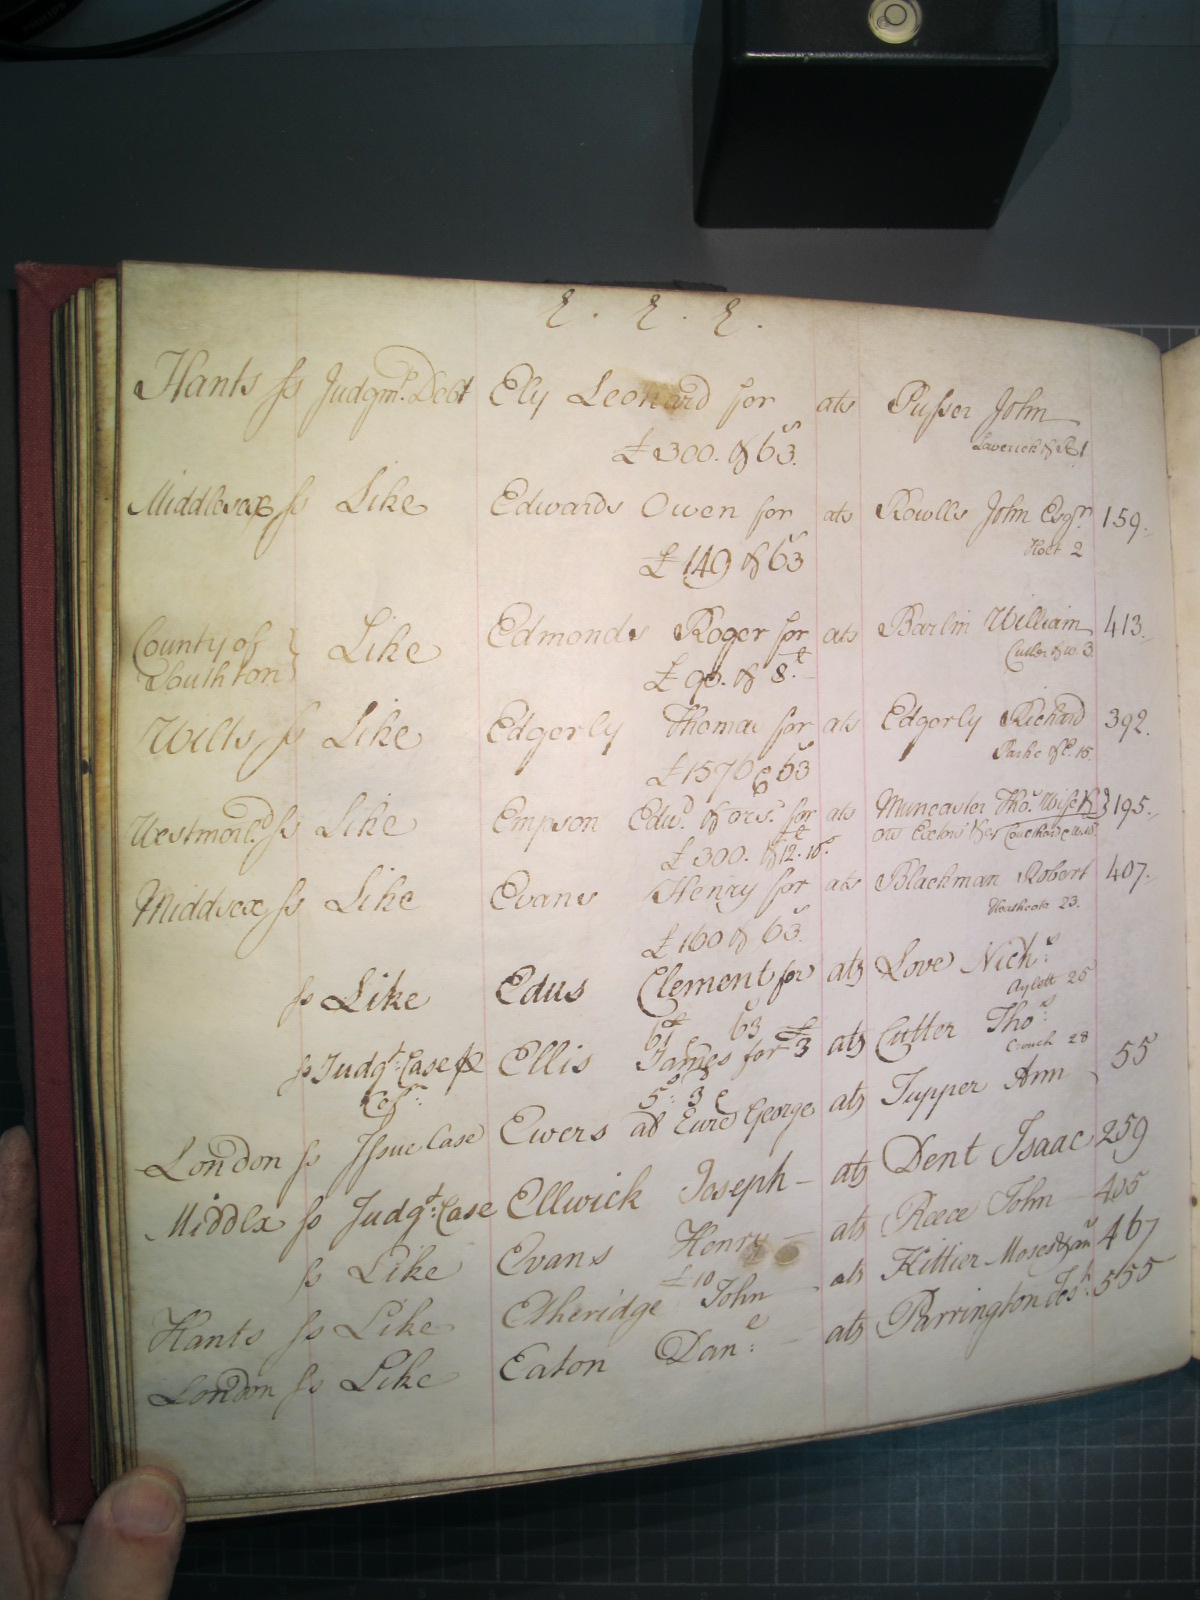 E. E. E.
Hants ſs Judgmt. Debt Ely Leonard for ats Pusser John
£300. & 63s. Laverick & Co. 1
Middlesex ſs Like Edwards Owen for ats Rowlls John Esqr. 159.
£149 & 63s Holt 2
County of Southton } Like Edmonds Roger for ats Barlin William 413.
£90. & 8£. Cutler & W. 3
Wilts ſs Like Edgerly Thomas for ats Edgerly Richard 392.
£1576 & 63s Parke & P. 15
Westmorld. ſs Like Empson Edwd. & ors. for ats Muncaster Thos. Wife & 195.
£300. & 12£. 10s.
Middsex ſs Like Evans Henry for ats Blackman Robert 407.
£160 & 63s. Heathcote 23.
ſs Like Edus Clement for ats Love Nichs.
6£ 63s Aylett 25
ſs Judgt. Case Ellis James for £3 ats Cutter Thos.
5s. 3 Crouch 28
London ſs Issue Case Ewers ads Eure George ats Tupper Ann 55
Middlx ſs Judgt. Case Ellwick Joseph - ats Dent Isaac 259
ſs Like Evans Henry - ats Reece John 405
£10
Hants ſs Like Etheridge John ats Kittier Moses 467
London ſs Like Eaton Dane. - ats Parrington Jesh. 555